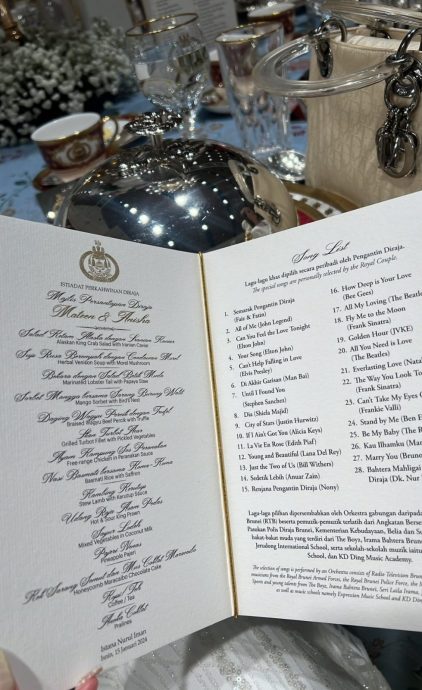 ISTIADAT PERKAHWINAN DIRAJA
Majlis Persantapan Diraja
Mateen & Anisha
Salad Ketam Alaska dengan Iranian Kaviar
Alaskan King Crab Salad with Iranian Caviar
Herbal Venison Soup with Morel Mushroom
Marinated Lobster Tail with Papaya Slaw
Mango Sorbet with Bird's Nest
Braised Wagyu Beef Perek with Truffle
Grilled Turbot Fillet with Pickled Vegetables
Free-range Chicken in Peranakan Sauce
Basmati Rice with Saffron
Stew Lamb with Kerutup Sauce
Hot & Sour King Prawn
Sayur Lodeh
Mixed Vegetables in Coconut Milk
Pajeri Nenas
Pineapple Pajeri
Honeycomb Maracuibo Chocolate Cake
Kopi / Teh
Coffee / Tea
Pralines
Istana Nurul Iman
Isnin, 15 Januari 2024
Song List
Lagu-lagu khas dipilih secara peribadi oleh Pengantin Diraja.
The special songs are personally selected by the Royal Couple.
1. Semarak Pengantin Diraja
(Faiz & Fatin)
2. All of Me (John Legend)
3. Can You Feel the Love Tonight
(Elton John)
4. Your Song (Elton John)
5. Can't Help Falling in Love
(Elvis Presley)
6. Di Akhir Garisan (Man Bai)
7. Until I Found You
(Stephen Sanchez)
8. Dia (Sheila Majid)
9. City of Stars (Justin Hurwitz)
10. If I Ain't Got You (Alicia Keys)
11. La Vie En Rose (Edith Piaf)
12. Young and Beautiful (Lana Del Rey)
13. Just the Two of Us (Bill Withers)
14. Sedetik Lebih (Anuar Zain)
15. Renjana Pengantin Diraja (Nony)
16. How Deep is Your Love
(Bee Gees)
17. All My Loving (The Beatles
18. Fly Me to the Moon
(Frank Sinatra)
19. Golden Hour (JVKE)
20. All You Need is Love
(The Beatles)
21. Everlasting Love (Natal
22. The Way You Look To
(Frank Sinatra)
23. Can't Take My Eyes O
(Frankie Valli)
24. Stand by Me (Ben E
25. Be My Baby (The R
26. Kau Ilhamku (Man
27. Marry You (Bruno
28. Bahtera Mahligai
Diraja (Dk. Nur
Lagu-lagu pilihan dipersembahkan oleh Orkestra gabungan daripada
Brunei (RTB) beserta pemuzik-pemuzik terlatih dari Angkatan Berse
Pasukan Polis Diraja Brunei, Kementerian Kebudayaan, Belia dan Su
bakat-bakat muda yang terdiri dari The Boys, Irama Bahtera Brunei
Jerudong International School, serta sekolah-sekolah muzik iaitu
School, dan KD Ding Music Academy.
The selection of songs is performed by an Orchestra consists of Radio Television Brunei
musicians from the Royal Brunei Armed Forces, the Royal Brunei Police Force, the
Sports and young talents from The Boys, Irama Bahtera Brunei, Seri Laila Irama,
as well as music schools namely Expression Music School and KD Din